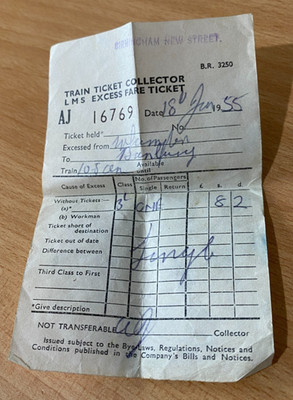 BIRMINGHAM NEW STREET.
B.R. 3250
TRAIN TICKET COLLECTOR
LMS EXCESS FARE TICKET
AJ 16769 Date 18 Jan 1955
Ticket held* No
Excessed from
To Banbury
Train Available until
Cause of Excess Class No. of Passengers £. s. d
Single Return
Without Tickets—
(a)* 3 ONE 8 2
(b) Workman
Ticket short of destination
Ticket out of date
Difference between
Third Class to First
*Give description
NOT TRANSFERABLE Collector
Issued subject to the Bye Laws, Regulations, Notices and
Conditions published in the Company's Bills and Notices.